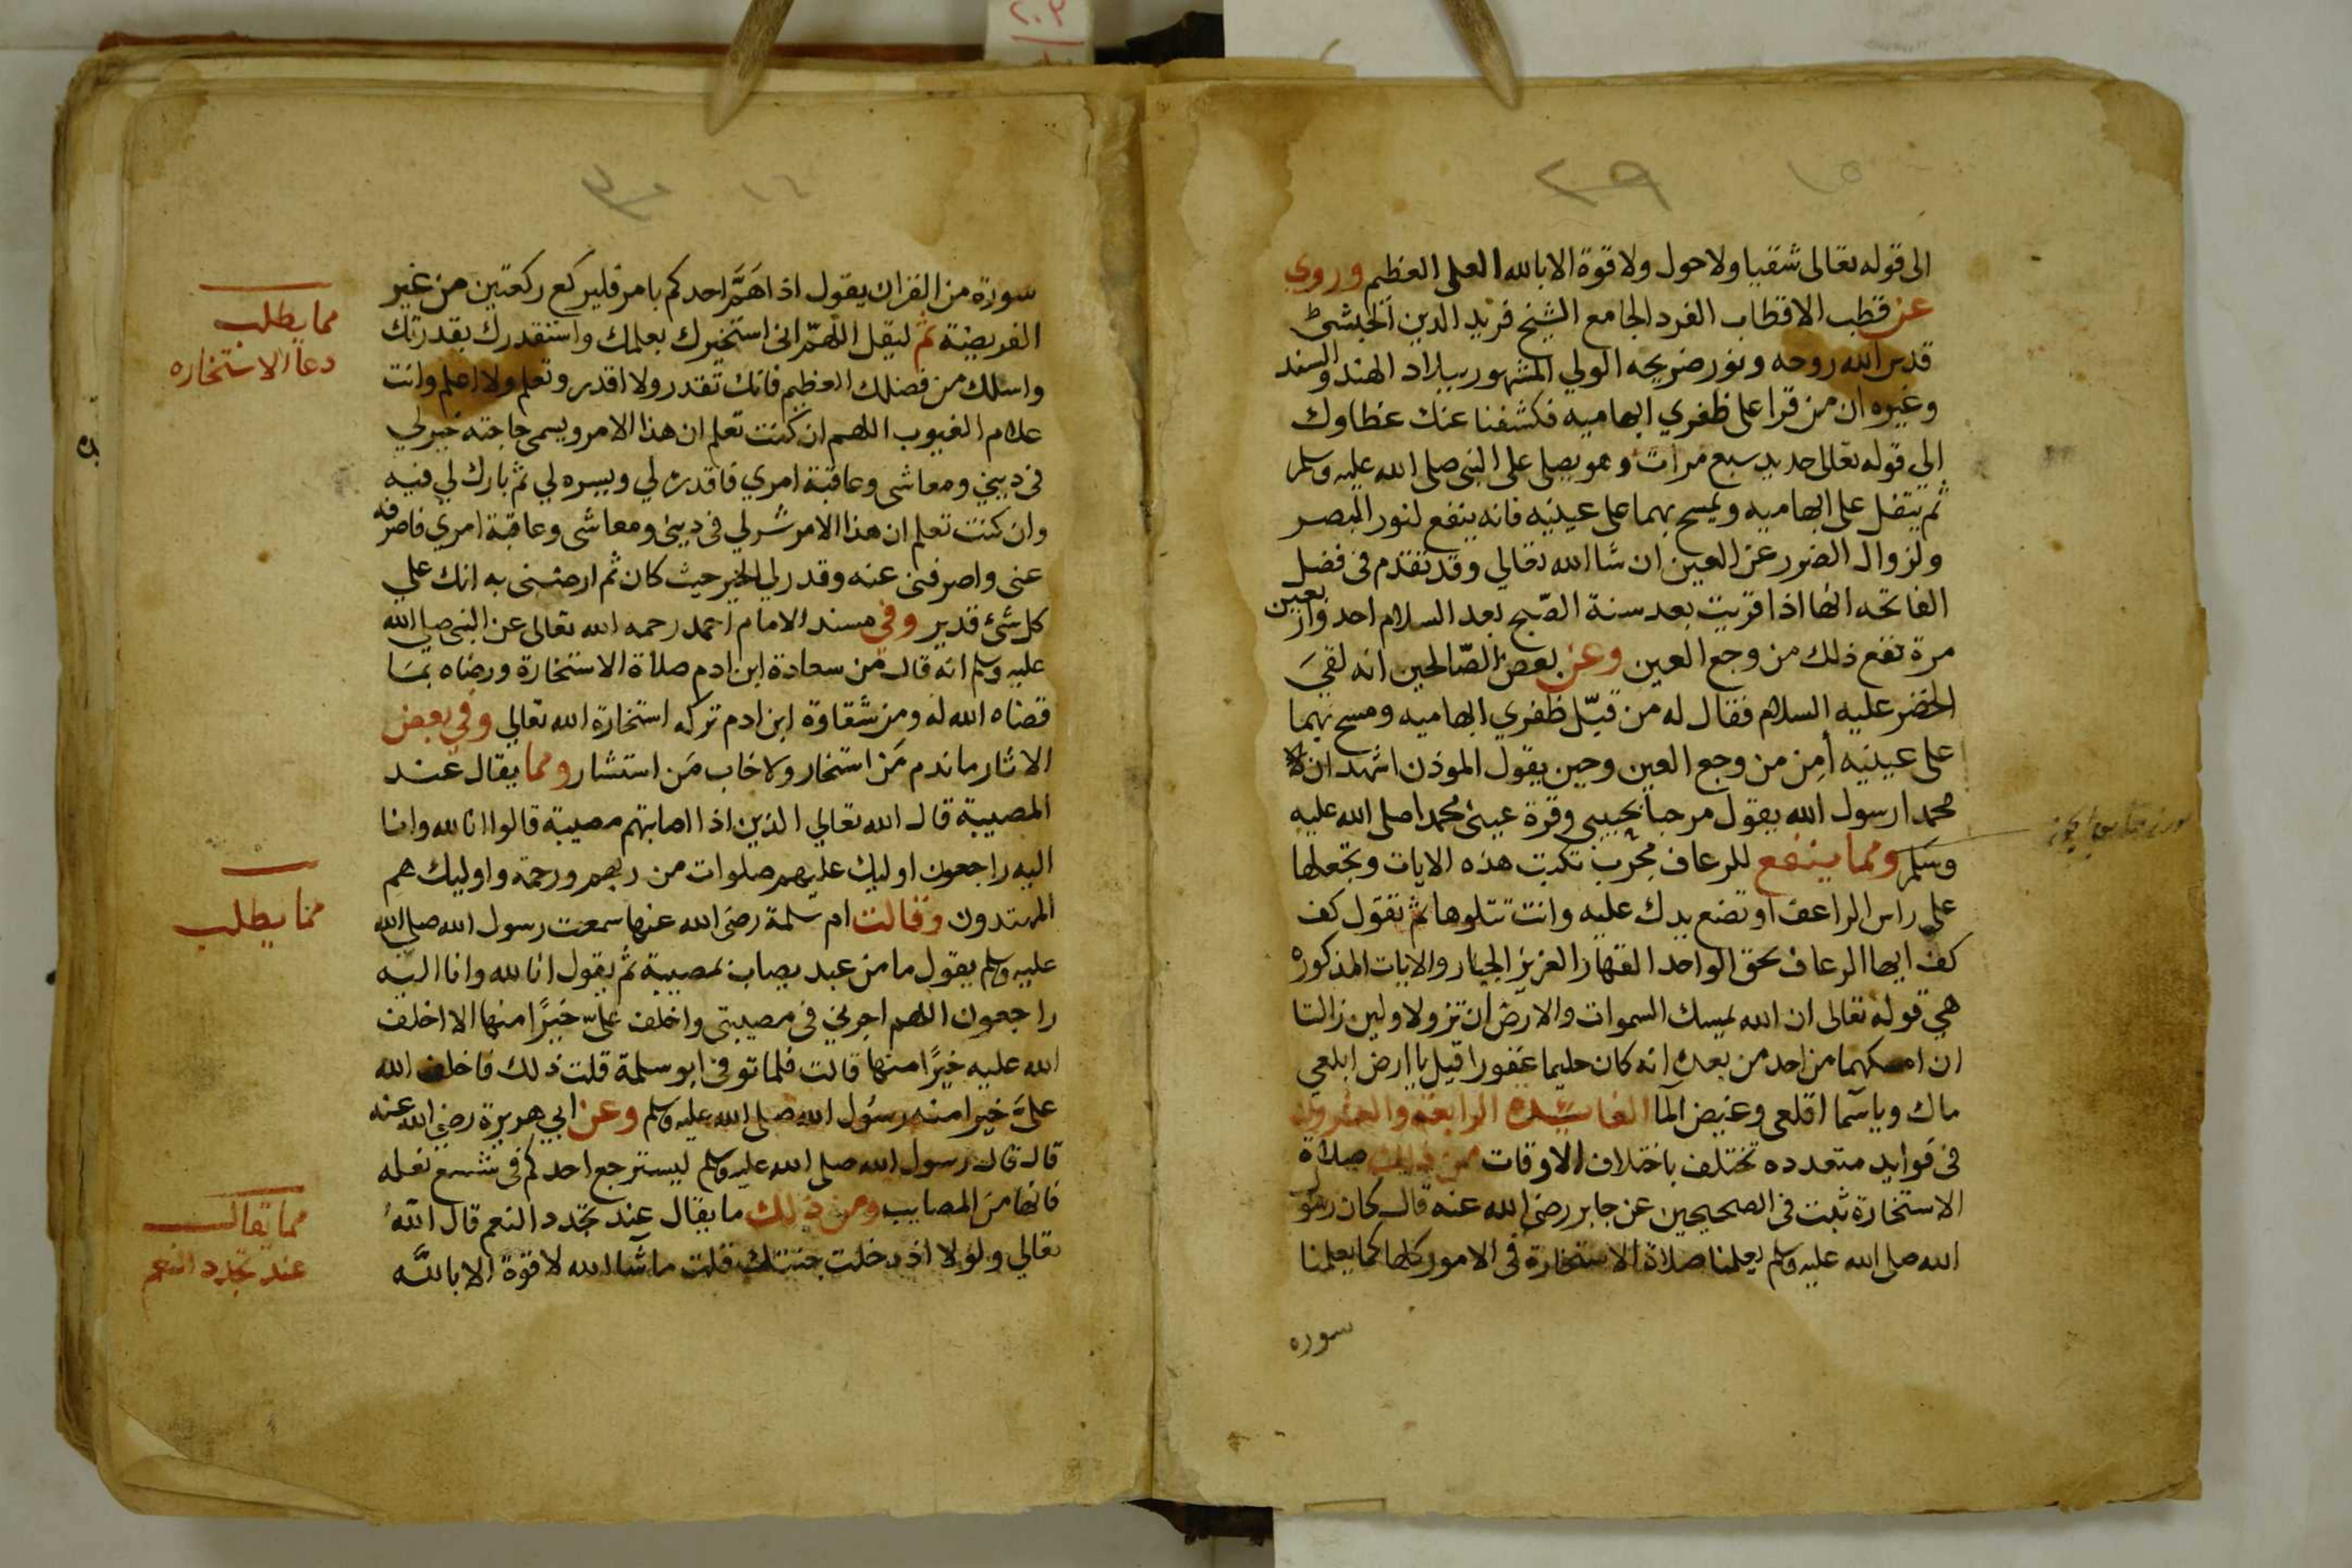 ٢٠٣
١٥
٢٩
الى قوله تعالى شقيا ولا حول ولا قوة الا بالله العلى العظيم وروي
عن قطب الاقطاب الفرد الجامع الشيخ فريد الدين
قدس الله روحه ونور ضريحه الولي المشهور ببلاد الهند والسند
وغيره ان من قرا على ظفري ابهاميه فكشفنا عنك غطاوك
الى قوله تعالى حديد سبع مرات وهو يصلى على النبى صلى الله عليه وسلم
ثم يتفل على ابهاميه ويمسح بهما على عينيه فانه ينفع لنور البصر
ولزوال الضرر عن العين ان شا الله تعالي وقد تقدم فى فضل
الفاتحه انها اذا قريت بعد سنة الصبح بعد السلام احد واربعين
مرة نفع ذلك من وجع العين وعن بعض الصّالحين انه لقيَ
الخضر عليه السلام فقال له من قبّل ظفري ابهاميه ومسح بهما
على عينيه أمِن من وجع العين وحين يقول الموذن اشهد ان
محمدا رسول الله يقول مرحبا بحبيبى وقرة عينى محمدا صلى الله عليه
وسلم ومما ينفع للرعاف مجرب تكتب هذه الايات وتجعلها
على راس الراعف او تضع يدك عليه وانت تتلوها ثم تقول كف
كف ايها الرعاف بحق الواحد القهار العزيز الجبار والايات المذكوره
هي قوله تعالى ان الله يمسك السموات والارض ان تزولا ولين زالتا
ان امسكهما من احد من بعده انه كان حليما غفورا قيل يا ارض ابلعي
ماك وياسما اقلعى وغيض الما الفايده الرابعة والعشرون
فى فوايد متعدده تختلف باختلاف الاوقات فمن ذلك صلاة
الاستخارة ثبت فى الصحيحين عن جابر رضى الله عنه قال كان رسول
الله صلى الله عليه وسلم يعلمنا صلاة الاستخارة فى الامور كلها كما يعلمنا
سوره
١٤
سورة من القران يقول اذا اهَمَّ احدكم بامر فليركع ركعتين من غير
الفريضة ثم ليقل اللهمّ انى استخيرك بعلمك واستقدرك بقدرتك
واسلك من فضلك العظيم فانك تقدر ولا اقدر وتعلم ولا اعلم وانت
علام الغيوب اللهم ان كنت تعلم ان هذا الامر ويسمى حاجته خير لي
فى ديني ومعاشى وعاقبة امري فاقدره لي ويسره لي ثم بارك لي فيه
وان كنت تعلم ان هذا الامر شر لي فى دينى ومعاشى وعاقبة امري فاصرفه
عنى واصرفنى عنه وقدر لي الخير حيث كان ثم ارضنى به انك على
كل شئ قدير وفي مسند الامام احمد رحمه الله تعالى عن النبى صلى الله
عليه وسلم انه قال من سعادة ابن ادم صلاة الاستخارة ورضاه بما
قضاه الله له ومن شقاوة ابن ادم تركه استخارة الله تعالي وفي بعض
الاثار ما ندم مَن استخار ولا خاب مَن استشار ومما يقال عند
المصيبة قال الله تعالي الذين اذا اصابتهم مصيبة قالوا انا لله وانا
اليه راجعون اوليك عليهم صلوات من ربهم ورحمة واوليك هم
المهتدون وقالت ام سلمة رضى الله عنها سمعت رسول الله صلى الله
عليه وسلم يقول ما من عبد يصاب بمصيبة ثم يقول انا لله وانا اليه
راجعون اللهم اجرني فى مصيبتى واخلف علىّ خيرًا منها الا اخلف
الله عليه خيرًا منها قالت فلما توفى ابو سلمة قلت ذلك فاخلف الله
علىَ خيرا منه رسول الله صلى الله عليه وسلم وعن ابي هريرة رضي الله عنه
قال قال رسول الله صلى الله عليه وسلم ليسترجع احدكم فى شسع نعله
فانها من المصايب ومن ذلك ما يقال عند تجدد النعم قال الله
تعالي ولولا اذ دخلت جنتك قلت ما شا الله لا قوة الا بالله
مما يطلب
دعا الاستخاره
مما يطلب
مما يقال
عند تجدد النعم